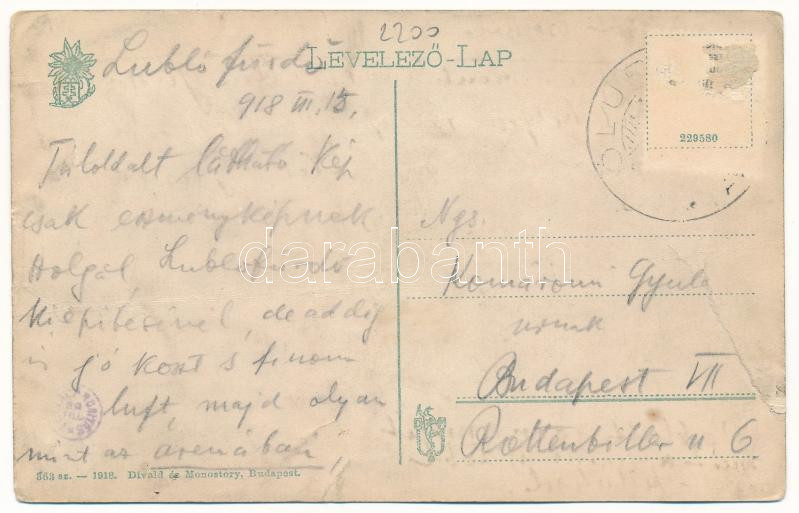 2200
LEVELEZŐ-LAP
Lubló fürdő
918 III. 15.
Túloldalt látható kép
csak eszményképnek
szolgál Lublófürdő
kiépítésénél, de addig
is jó koszt s finom
luft, majd olyan
mint az arenában,
363 sz. — 1918. Divald és Monostory, Budapest.
229580
Ngs.
Komáromi Gyula
urnak
Budapest VII
Rottenbiller u. 6
darabanth.com